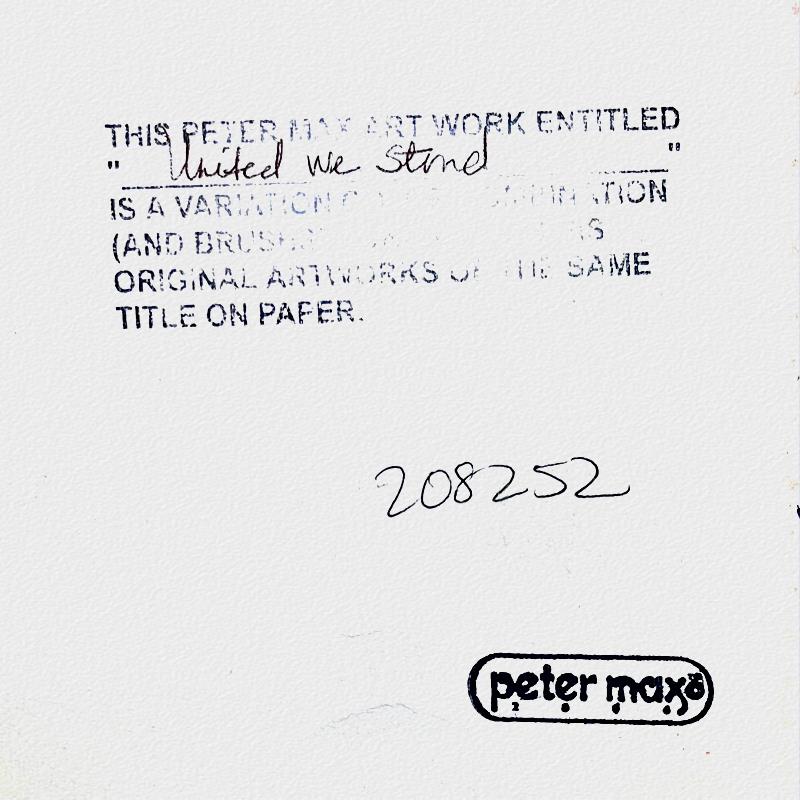 THIS PETER MAX ART WORK ENTITLED
"United We Stand"
IS A VARIATION
(AND
ORIGINAL ARTWORKS OF THE SAME
TITLE ON PAPER.
208252
peter max